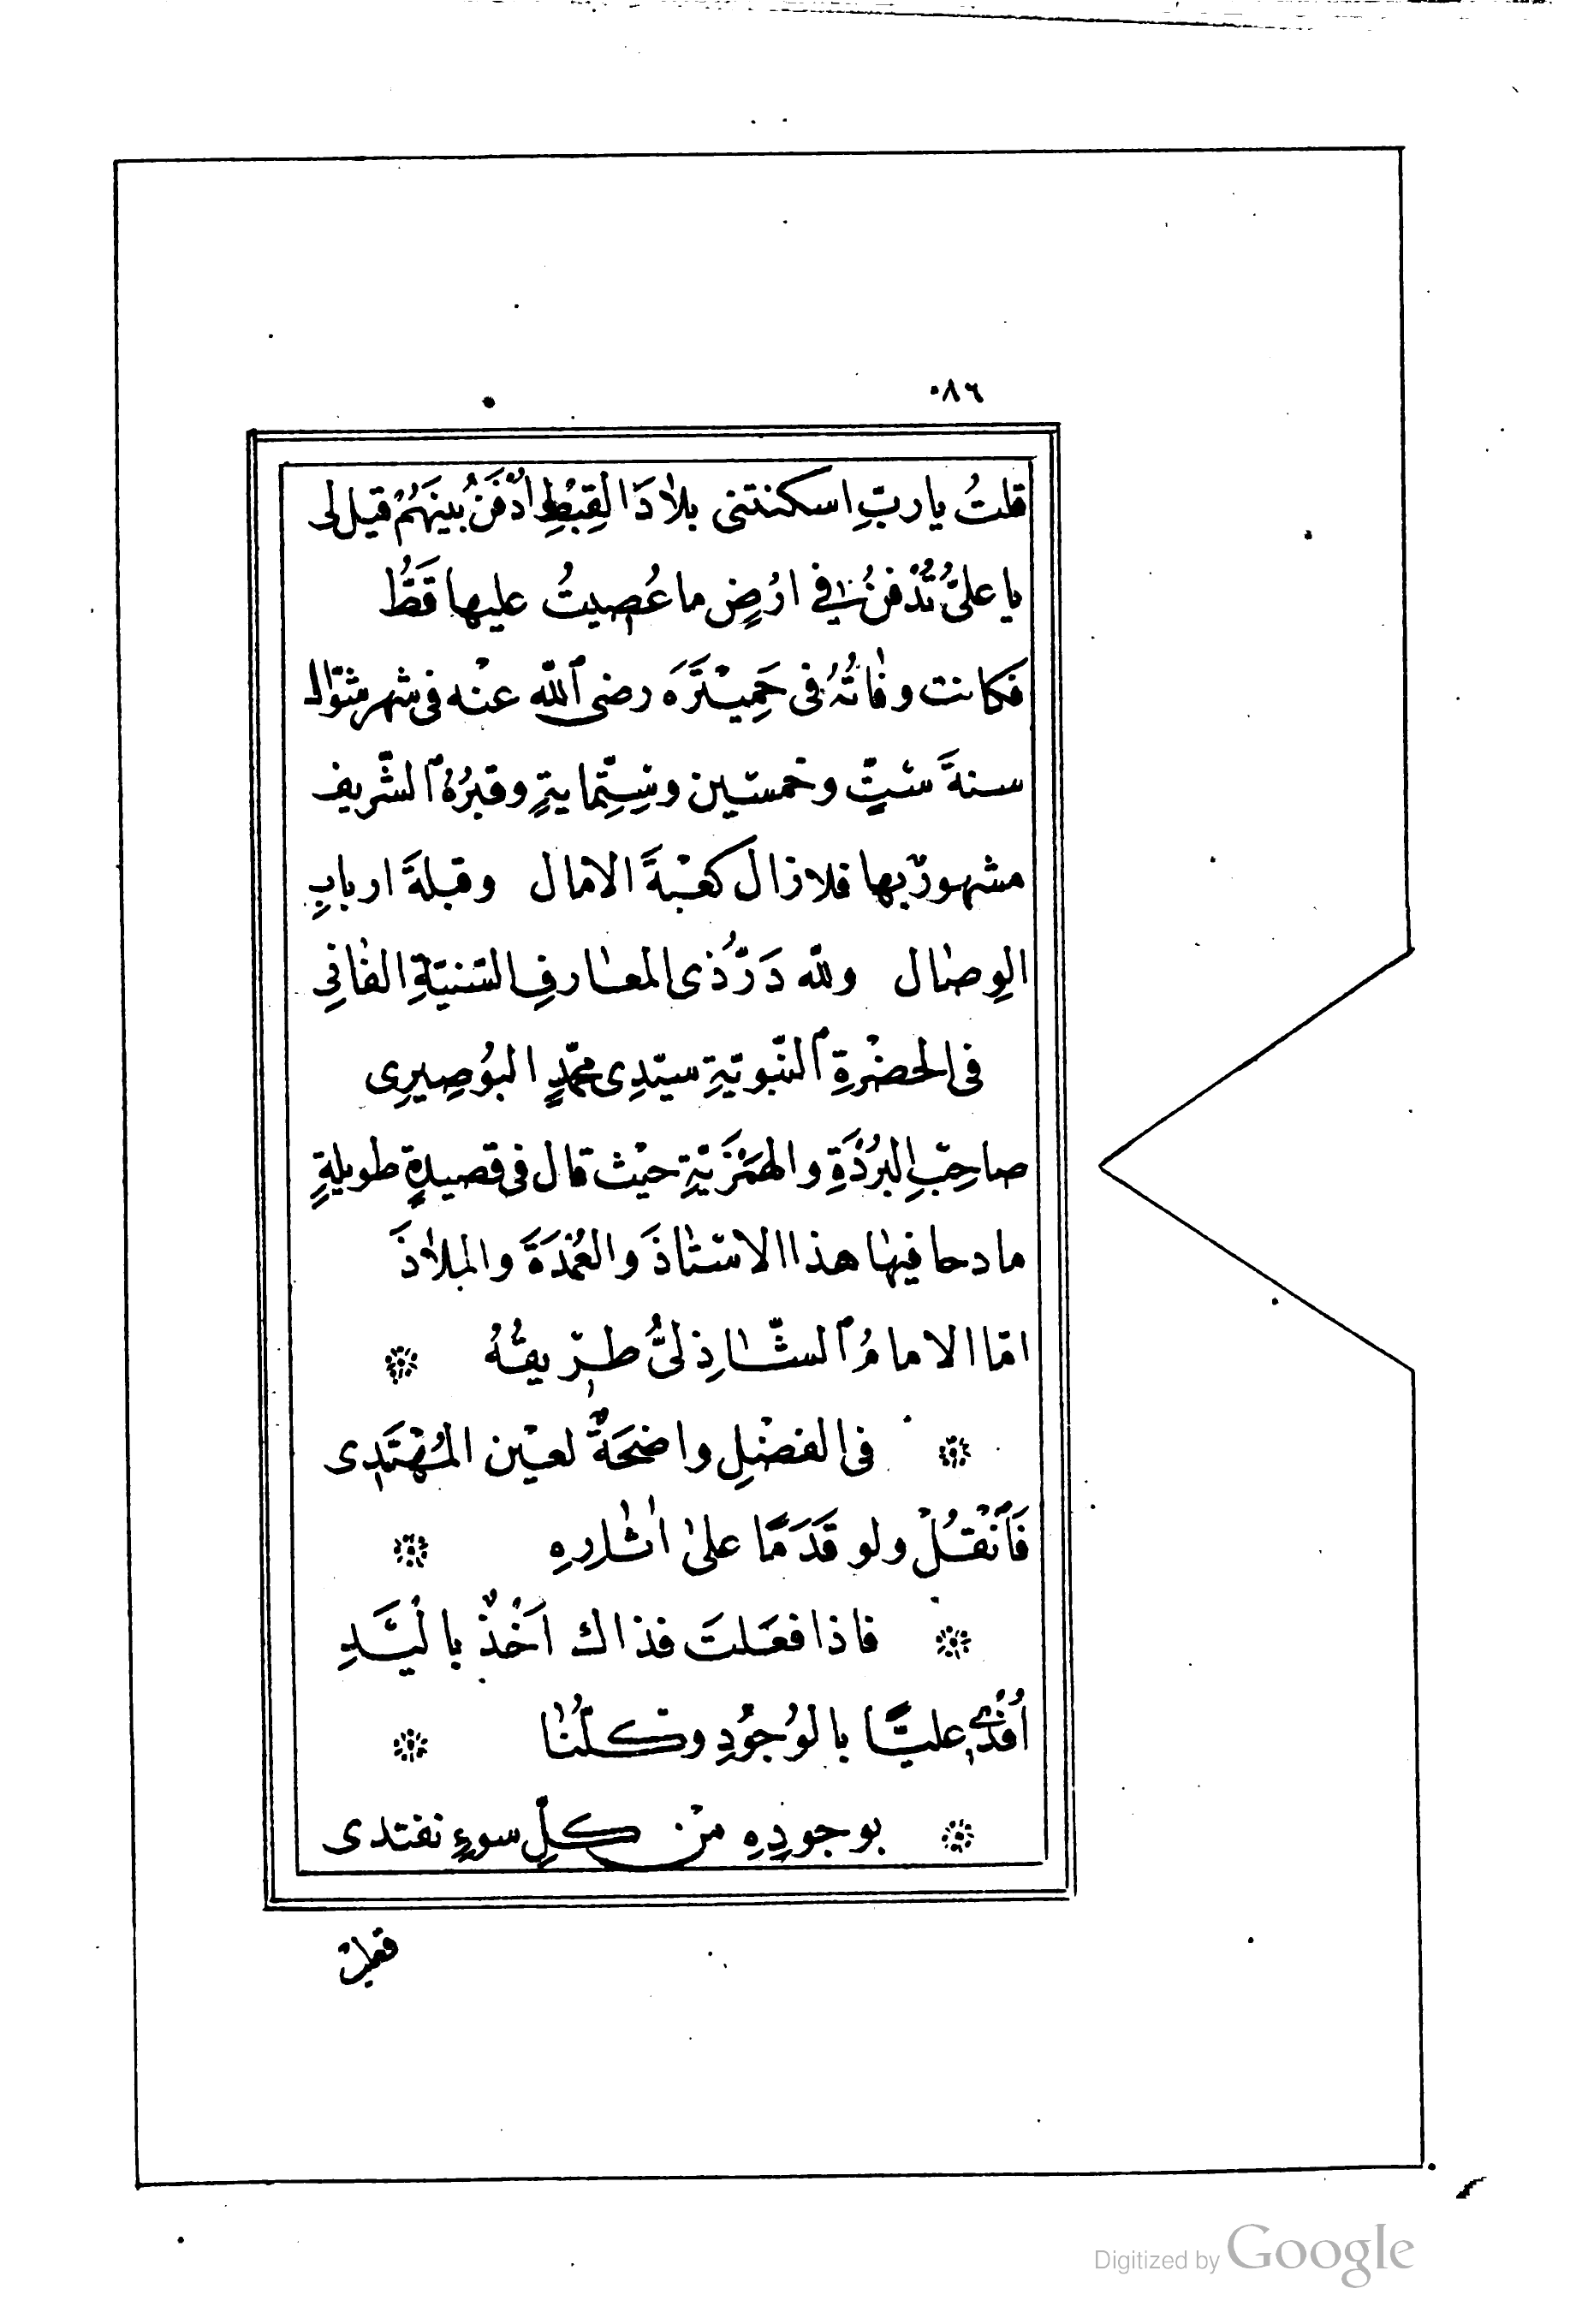 ٠٨٦
قلتُ يا ربِّ اسكنتنى بلادَ القِبْطِ اُدْفَنُ بينَهُمْ قيل لى
يا علىُّ تُدْفَنُ فى ارْضٍ ما عُصِيتُ عليها قَطُّ
فكانت وفاتُهُ فى حَمِيْتَرَه رضى ٱللّه عنْه فى شهر شوّال
سنةَ ستٍّ وخمسين وسِتِّمايةٍ وقبرُهُ ٱلشَّريف
مشهورٌ بها فلا زال كعْبَةَ الامال وقبلةَ اربابِ
الوِصال وللّه دَرُّ ذى المعارفِ السّنيّةِ الفانِى
فى الحضْرةِ ٱلنّبويّةِ سيّدِى محمّدٍ البُوصِيرِى
صاحِبِ البُرْدَةِ والهَمْزَيّةِ حيْث قال فى قصيدةٍ طويلةٍ
مادحا فيها هذا الاسْتاذَ والعُمْدَةَ والملاذَ
امّا الامامُ ٱلشّاذِلىُّ طرِيقُهُ
فى الفضْلِ واضحَةٌ لعيْن المُهْتَدِى
فَٱنْقُلْ ولو قَدَمًا على اثارِهِ
فاذا فعَلتَ فذاك اَخْذٌ باليَدِ
اُفْدِى عليًّا بالوُجُودِ وكلُّنا
بوجودِهِ منْ كلِّ سوءٍ نفتدى